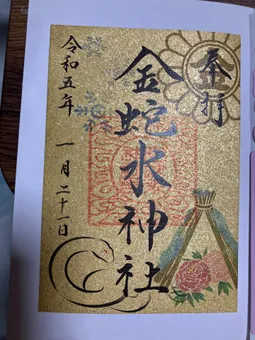 奉拝
金蛇水神社
令和五年
一月二十一日